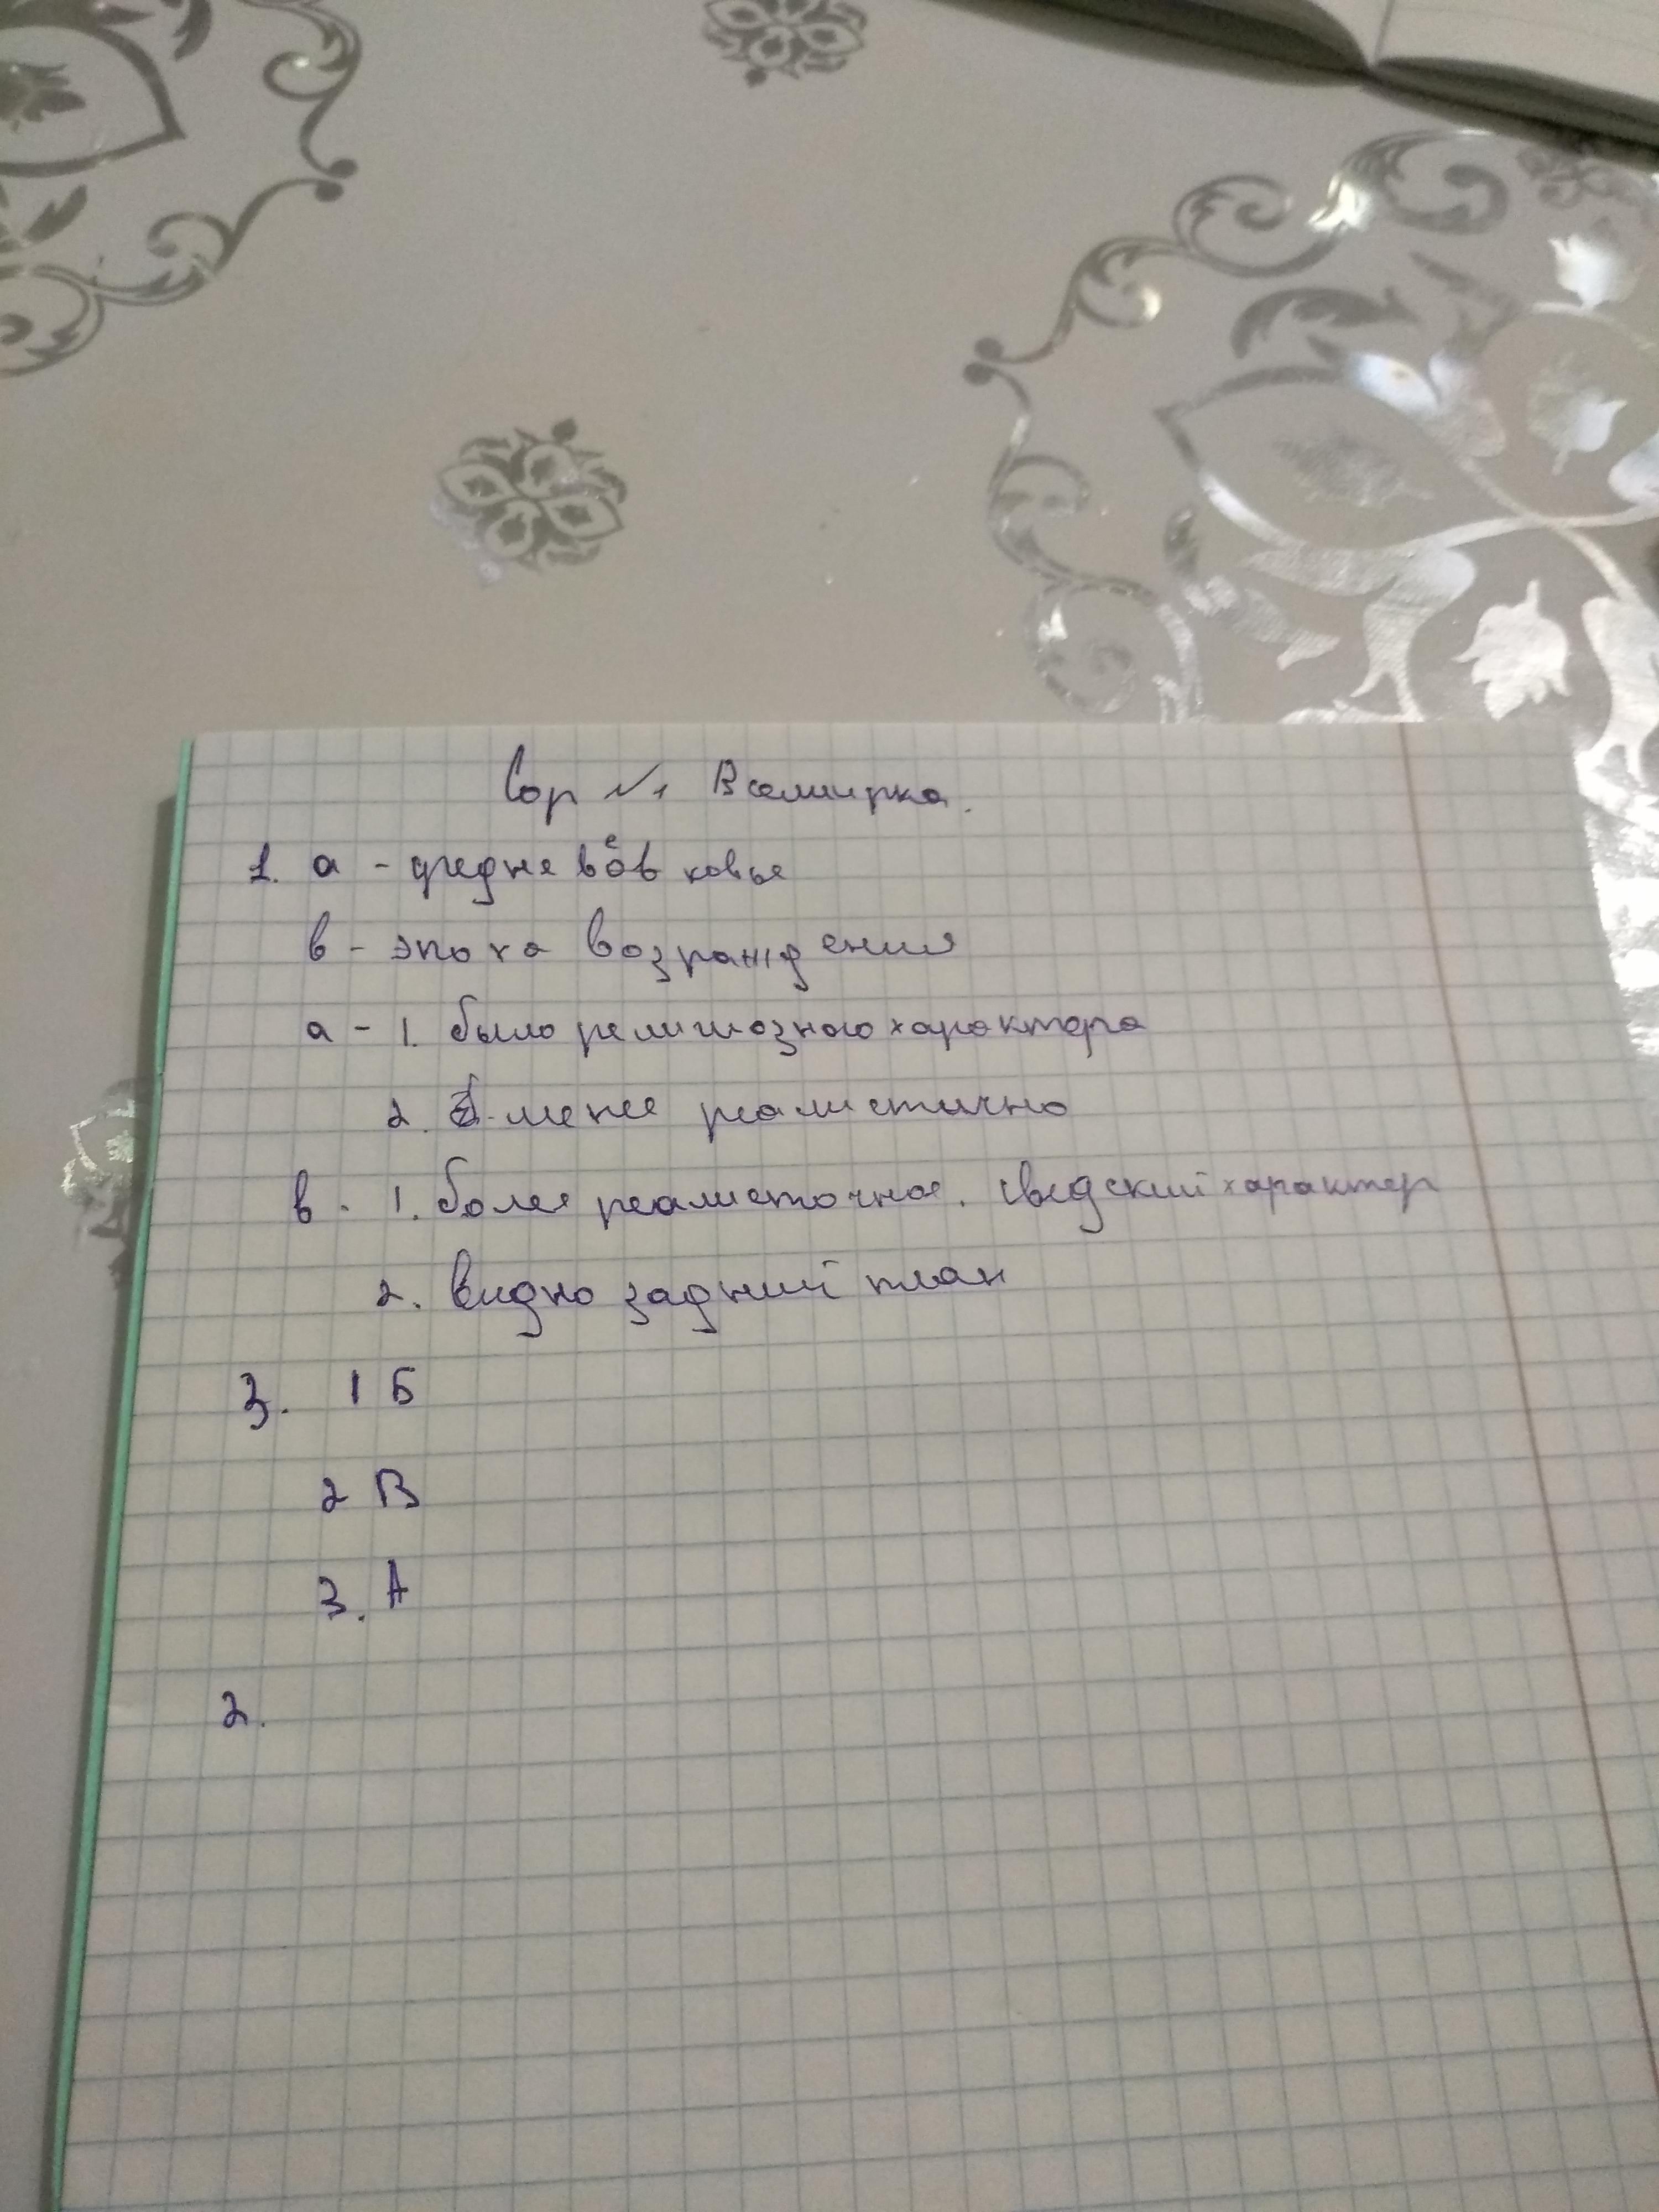 Сор №1 Всемирка.
1. а - средневековье
в - эпоха возраждения
а - 1. было религиозного характера
2. менее реалистично
в - 1. более реалисточное. светский характер
2. видно задний план
3. 1 Б
2 В
3. А
2.